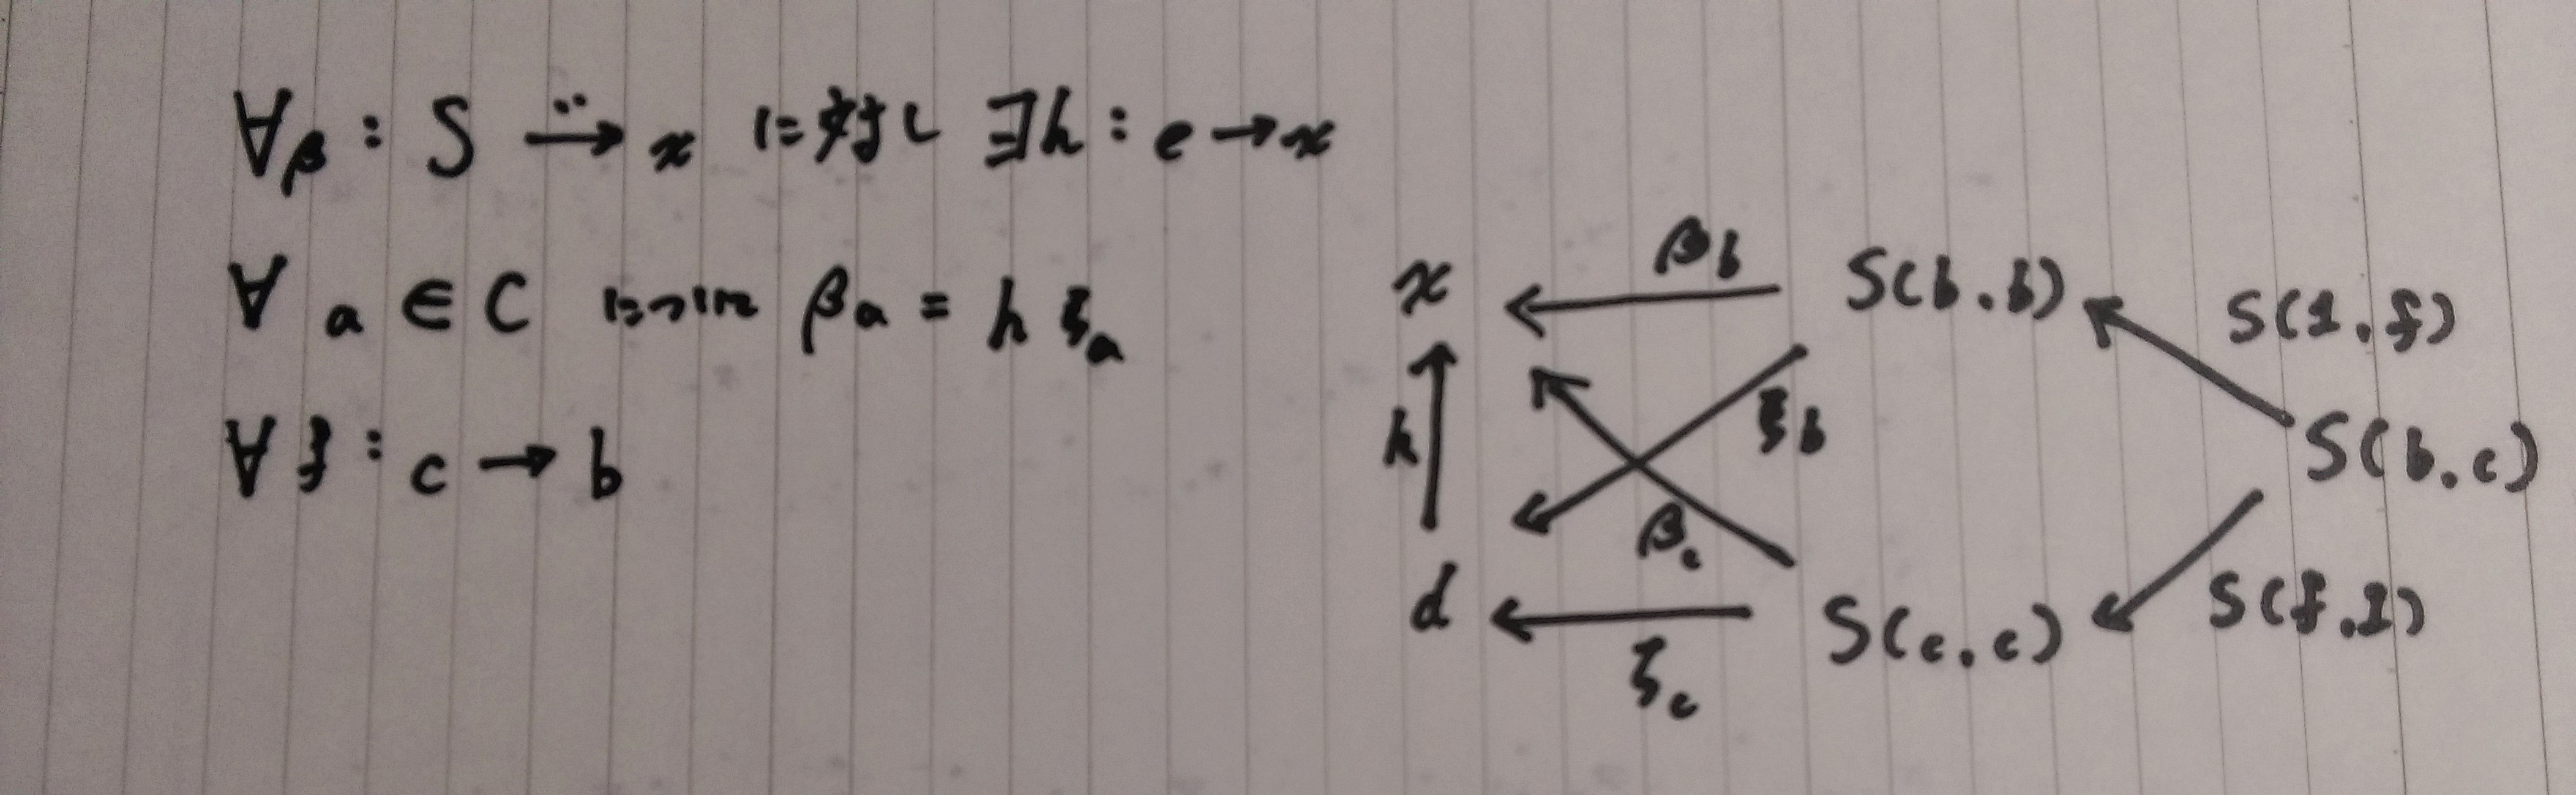 ∀β : S ⃛→ x に対し ∃h : e → x
∀ a ∈ C について βa = h ζa
∀ f : c → b
x ← βb S(b,b) S(1,f)
h ξb S(b,c)
βc
d ← S(c,c) S(f,1)
ζc